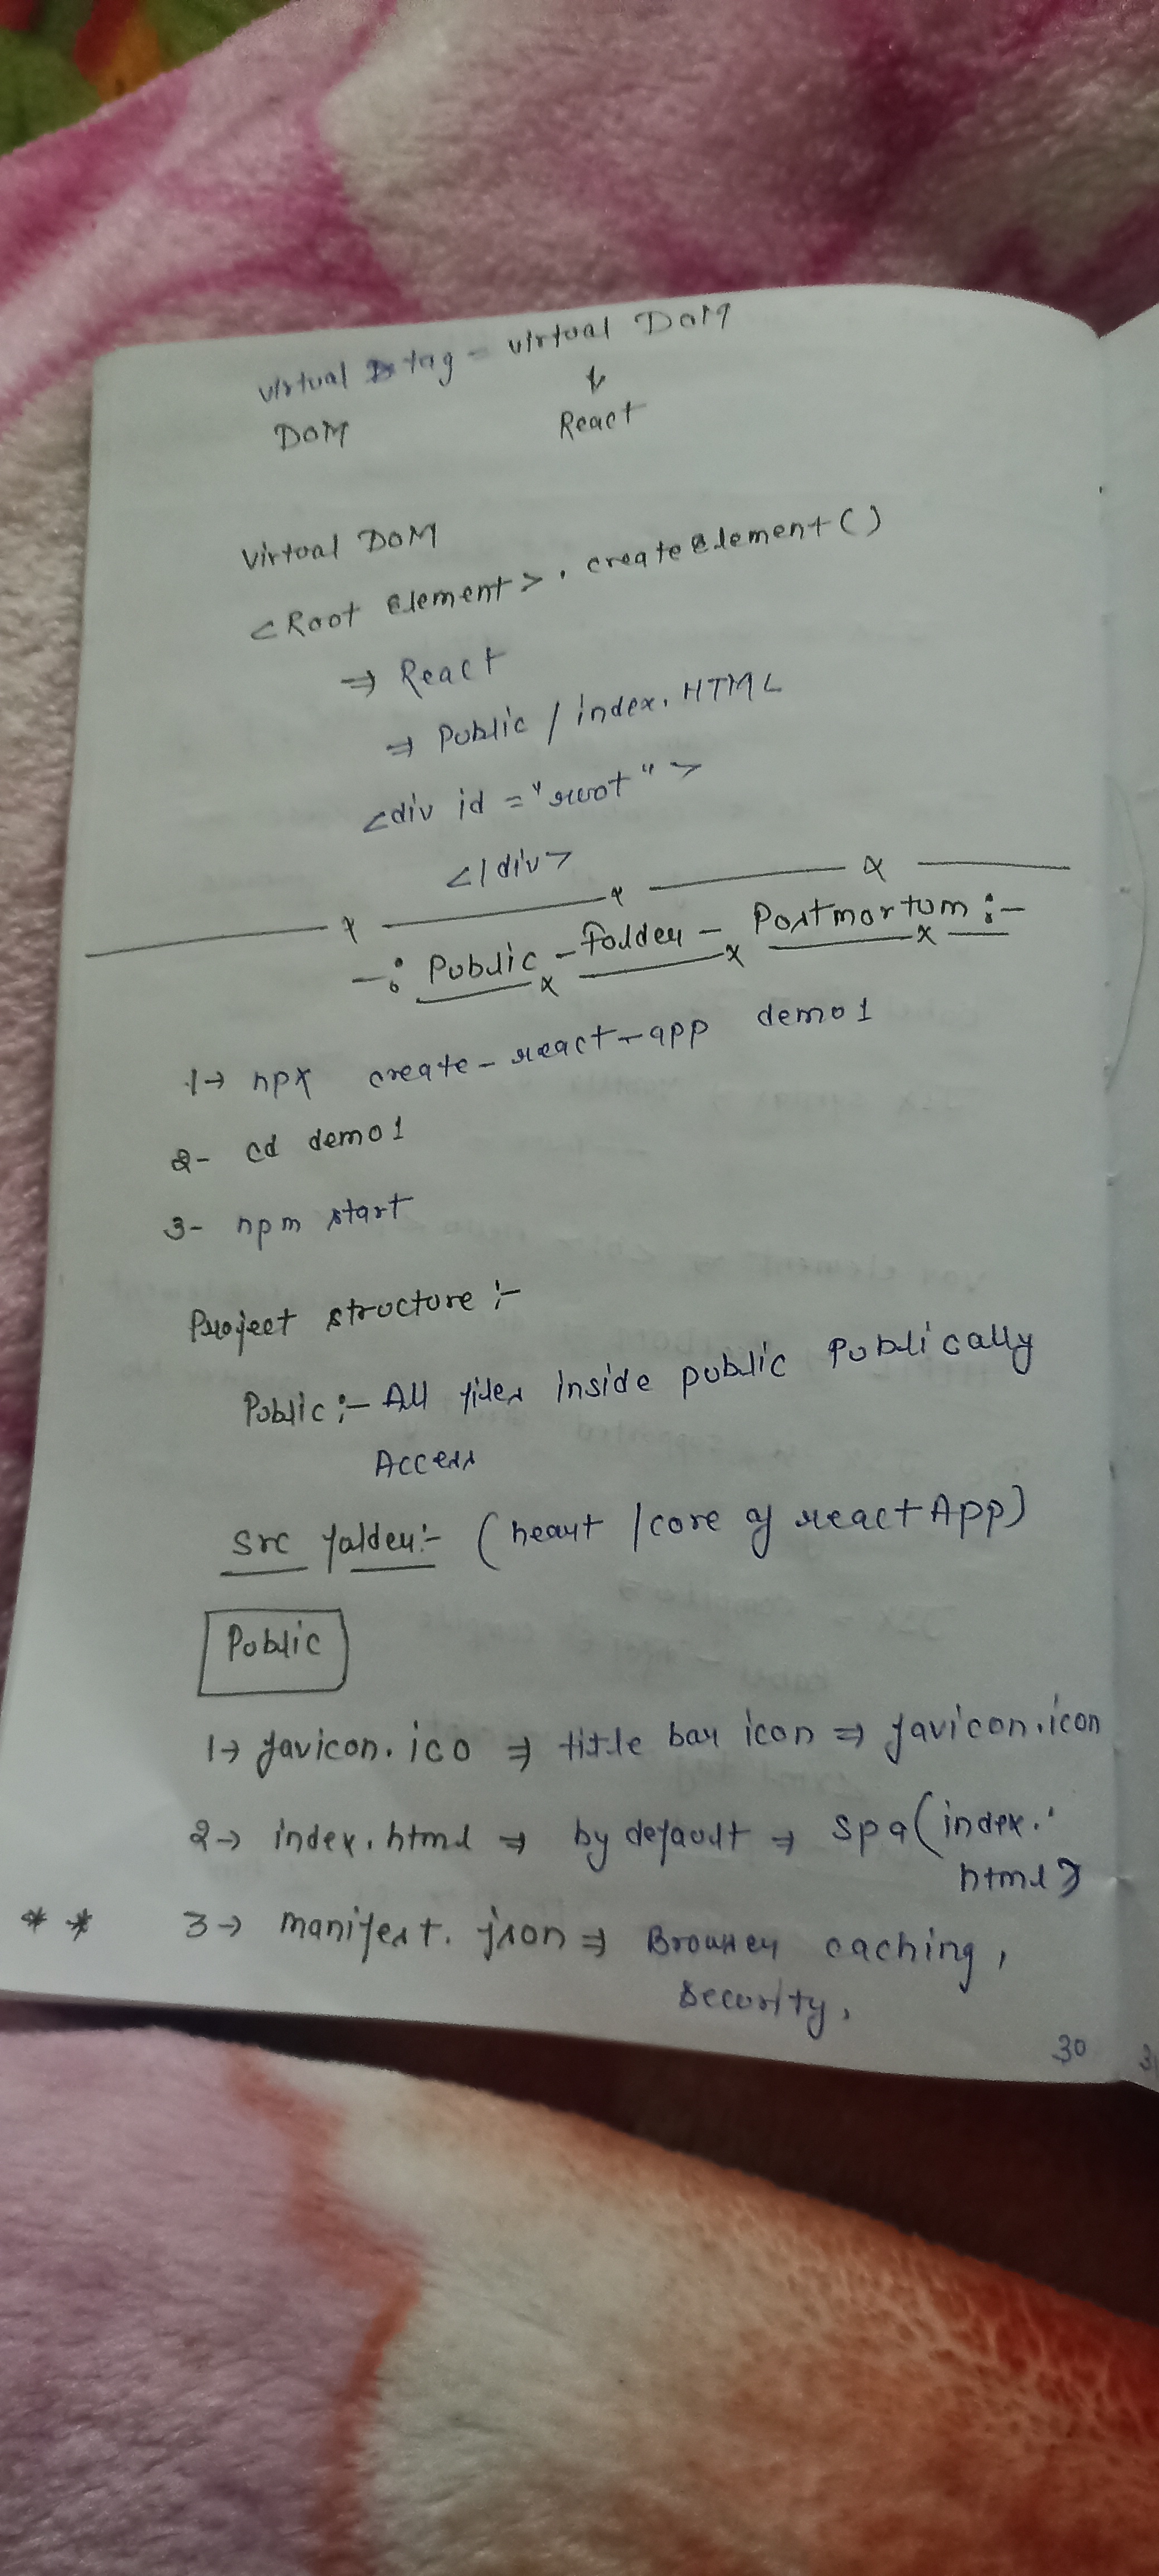 virtual tag = virtual DOM
DOM React
virtual DOM
<Root element>. createElement()
⇒ React
⇒ Public / index. HTML
<div id = "root" >
</div>
-: Public - Folder - Postmortom :-
1→ npx create-react-app demo1
2- cd demo1
3- npm start
Project structure :-
Public :- All files inside public Publically
Access
src folder :- (heart / core of react App)
Public
1→ favicon. ico ⇒ title bar icon ⇒ favicon.icon
2→ index. html ⇒ by default ⇒ spa (index.
html)
** 3→ manifest. json ⇒ Browser caching,
security,
30